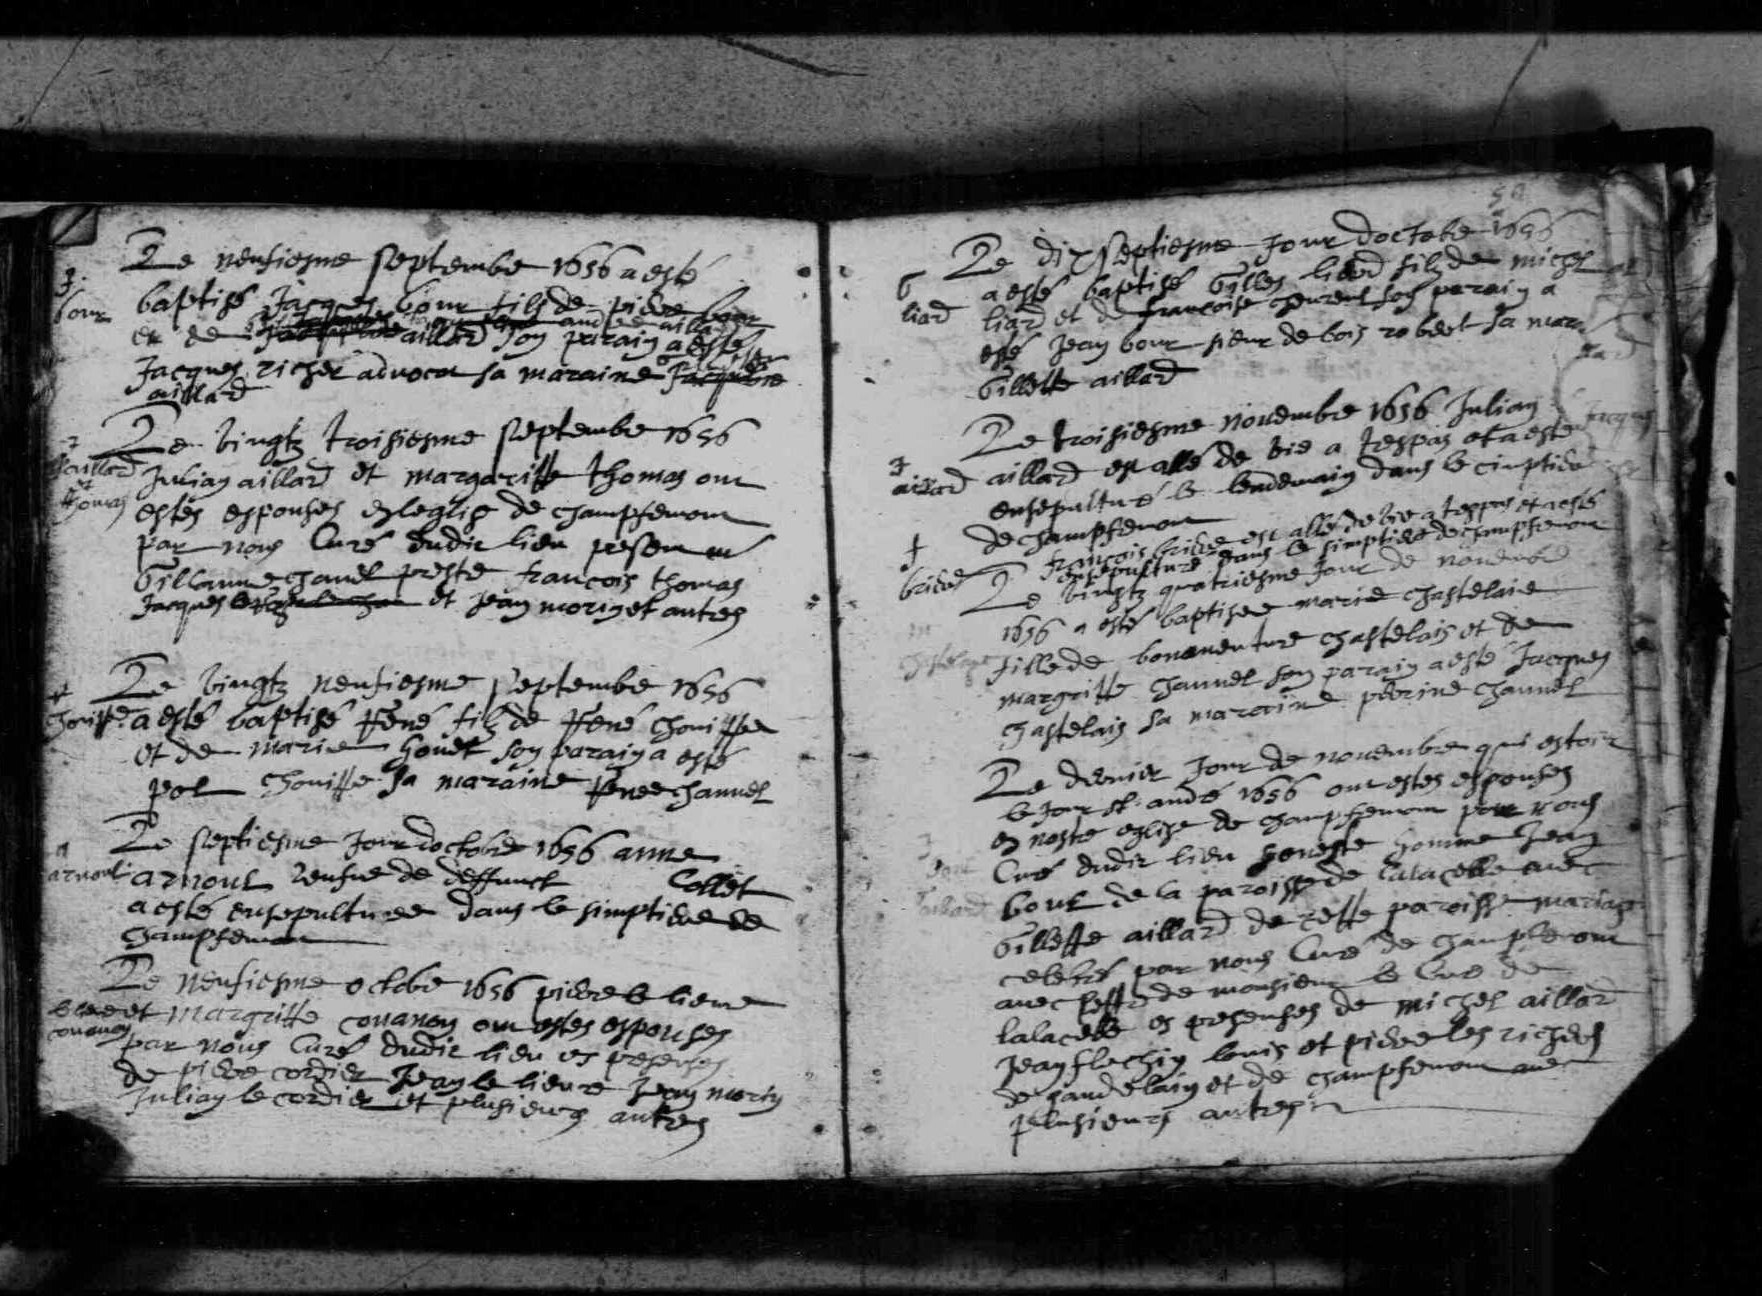 Le neufiesme septembre 1656 a esté
J.
bour
baptisé Jacques bour filz de pierre bour
et de aillard son parain a esté
Jacques richer advocat sa maraine
aillard
Le vingtz troisiesme septembre 1656
J aillard
et
thomas
Julian aillard et margaritte thomas ont
estés espousés en leglise de champfremont
par nous Curé dudit lieu present me
Gillaume chauvel preste francois thomas
Jacques et Jean morin et autres
Le vingtz neufiesme septembre 1656
chouippe
a esté baptisé René filz de René chouippe
et de marie houel son parain a esté
pol chouippe sa maraine Renee chauvel
Le septiesme Jour doctobre 1656 anne
a
arnoul
arnoul veufve de deffunct Collet
a esté ensepulturee dans le simptiere de
champfremont
Le neufiesme octobre 1656 pierre le lievre
le lievre
couanon
et margritte couanon ont estés espousés
par nous Curé dudit lieu es presences
de pierre cordier Jean le lievre Jean morin
Julian le cordier et plusieurs autres
Le dix septiesme Jour doctobre 1656
G
liard
a esté baptisé Gilles liard filz de michel
liard et de francoise son parain a
esté Jean bour sieur de bois robert sa mar
Gillette aillard
Le troisiesme novembre 1656 Julian
J
aillard
aillard est allé de vie a trespas et a esté
ensepulturé le lendemain dans le cimptiere
de champfremont
briere
francois briere est allé de vie a trespas et a esté
ensepulturé dans le simptiere de champfremont
Le vingtz quatriesme Jour de novembre
1656 a esté baptisee marie chastelais
fille de bonaventure chastelais et de
margritte chauvel son parain a esté Jacques
chastelais sa maraine perrine chauvel
Le dernier Jour de novembre qui estoit
le Jour st andré 1656 ont estés espousés
en nostre eglise de champfremont par nous
Curé dudit lieu honeste homme Jean
bour de la paroisse de lalacelle avec
Gillette aillard de cette paroisse mariage
celebré par nous Curé de champfremont
avec de monsieur le Curé de
lalacelle es presences de michel aillard
Jean flechin louis et pierre les richers
de gandelain et de champfremont avec
plusieurs autres